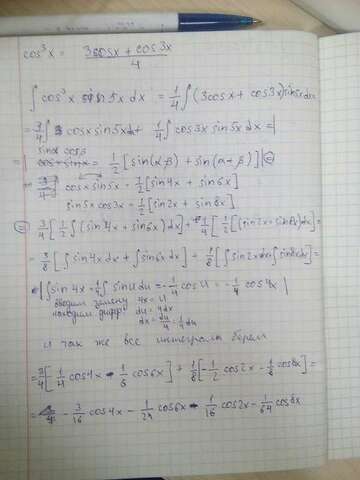 cos³x = (3cosx + cos3x)/4
∫cos³x sin5xdx = 1/4 ∫(3cosx + cos3x)sin5xdx=
= 3/4 ∫ cosx sin5xdx + 1/4 ∫cos3x sin5x dx =|
sinα cosβ = 1/2 [sin(α-β) + sin(α+β)] |=
cosx sin5x = 1/2 [sin4x + sin6x]
sin5x cos3x = 1/2 [sin2x + sin8x]
= 3/4 [1/2 ∫(sin4x + sin6x)dx] + 1/4 [1/2 ∫(sin2x + sin8x)dx] =
= 3/8 [∫sin4xdx + ∫sin6xdx] + 1/8 [∫sin2xdx + ∫sin8xdx] =
|∫sin4x = 1/4 ∫sinu du = -1/4 cosu = -1/4 cos4x |
вводим замену 4x = u
находим дифф. du = 4dx
dx = du/4 = 1/4 du
и так же все интегралы берем
= 3/8 [-1/4 cos4x - 1/6 cos6x] + 1/8 [-1/2 cos2x - 1/8 cos8x] =
= - 3/16 cos4x - 1/24 cos6x - 1/16 cos2x - 1/64 cos8x